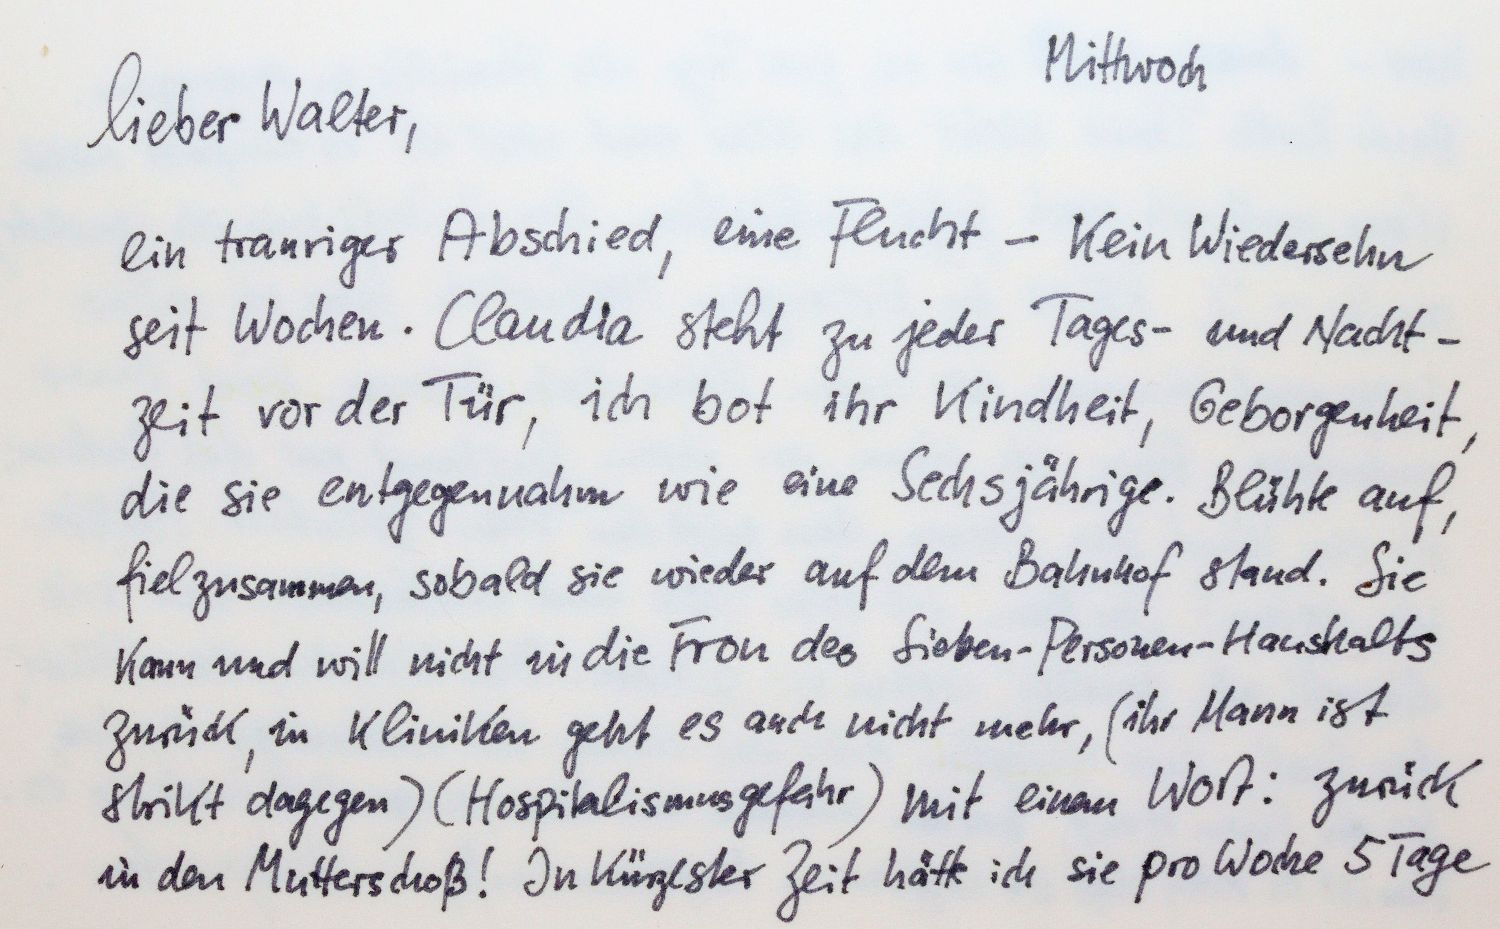 Mittwoch
lieber Walter,
ein trauriger Abschied, eine Flucht – Kein Wiedersehn
seit Wochen. Claudia steht zu jeder Tages- und Nacht-
zeit vor der Tür, ich bot ihr Kindheit, Geborgenheit,
die sie entgegennahm wie eine Sechsjährige. Blühte auf,
fiel zusammen, sobald sie wieder auf dem Bahnhof stand. Sie
kann und will nicht in die Fron des Sieben-Personen-Haushalts
zurück, in Kliniken geht es auch nicht mehr, (ihr Mann ist
strikt dagegen) (Hospitalismusgefahr) mit einem Wort: zurück
in den Mutterschoß! In kürzester Zeit hätte ich sie pro Woche 5 Tage